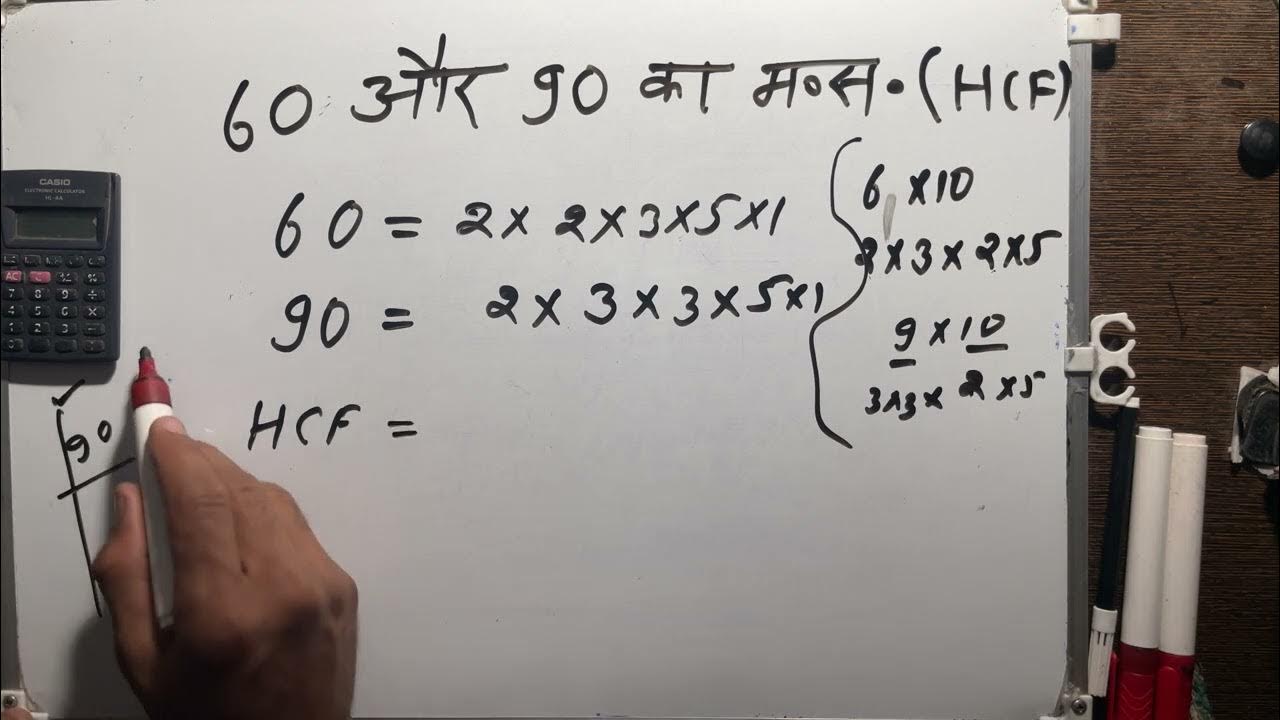 60 और 90 का म॰स॰ (HCF)
60 = 2 × 2 × 3 × 5 × 1
90 = 2 × 3 × 3 × 5 × 1
HCF =
6 × 10
2 × 3 × 2 × 5
9 × 10
3 × 3 × 2 × 5
90
CASIO
ELECTRONIC CALCULATOR
AC C
7 8 9 ÷
4 5 6 ×
1 2 3 -